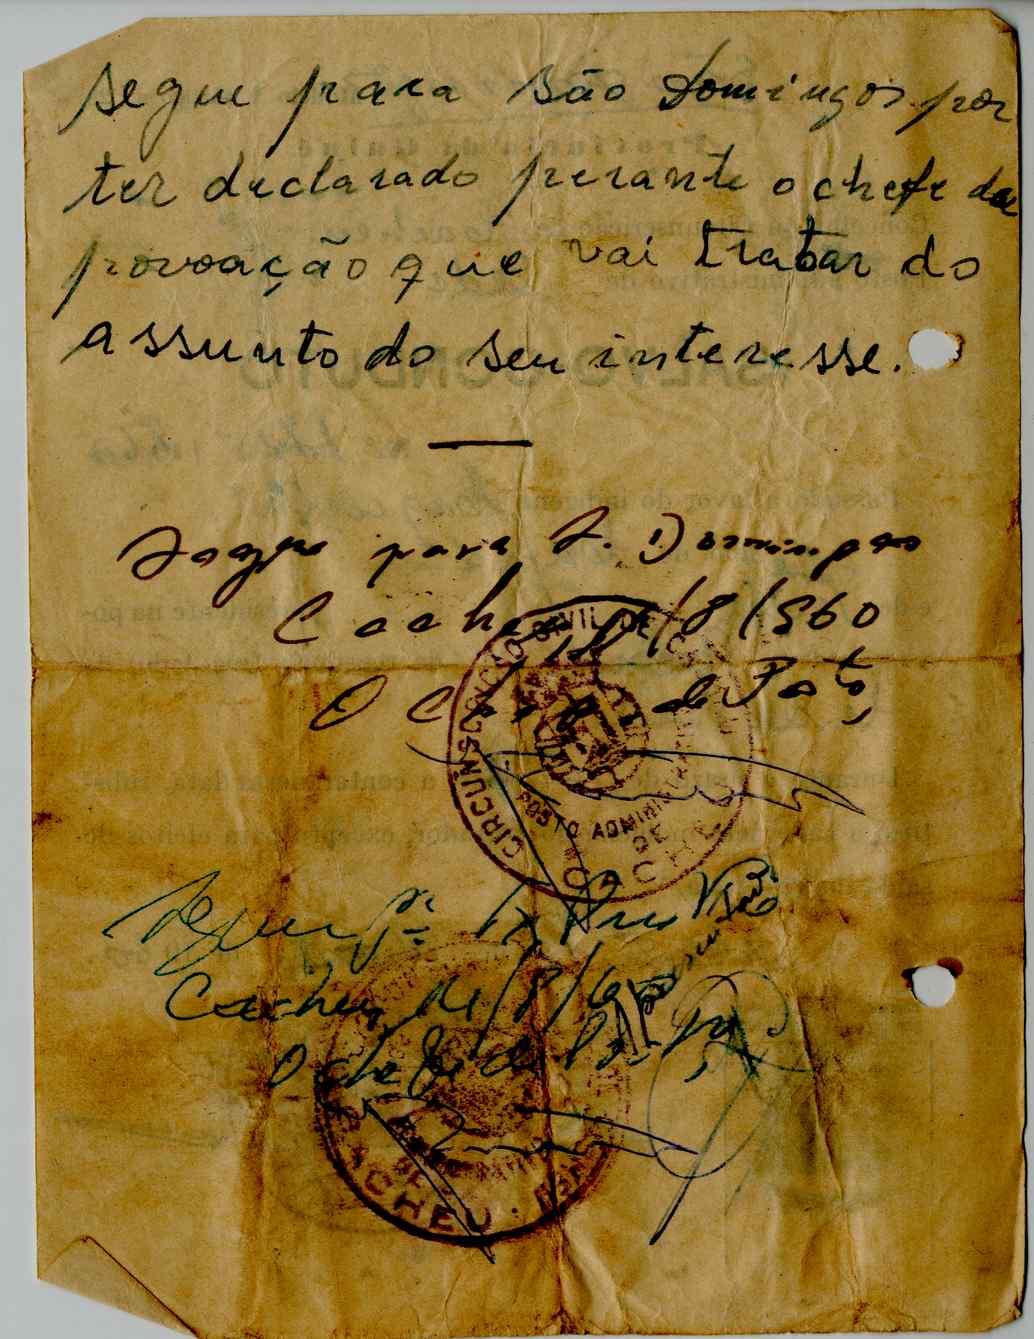 segue para São Domingos por
ter declarado perante o chefe da
provoação que vai tratar do
assunto do seu interesse.
Segue para S. Domingos
Cacheu /8/960
O Chefe de Posto,
CIRCUNSCRIÇÃO CIVIL DE
POSTO ADMINISTRATIVO
DE
CACHEU
Segue pª
Cacheu, /8/60
O chefe do Posto,
CACHEU